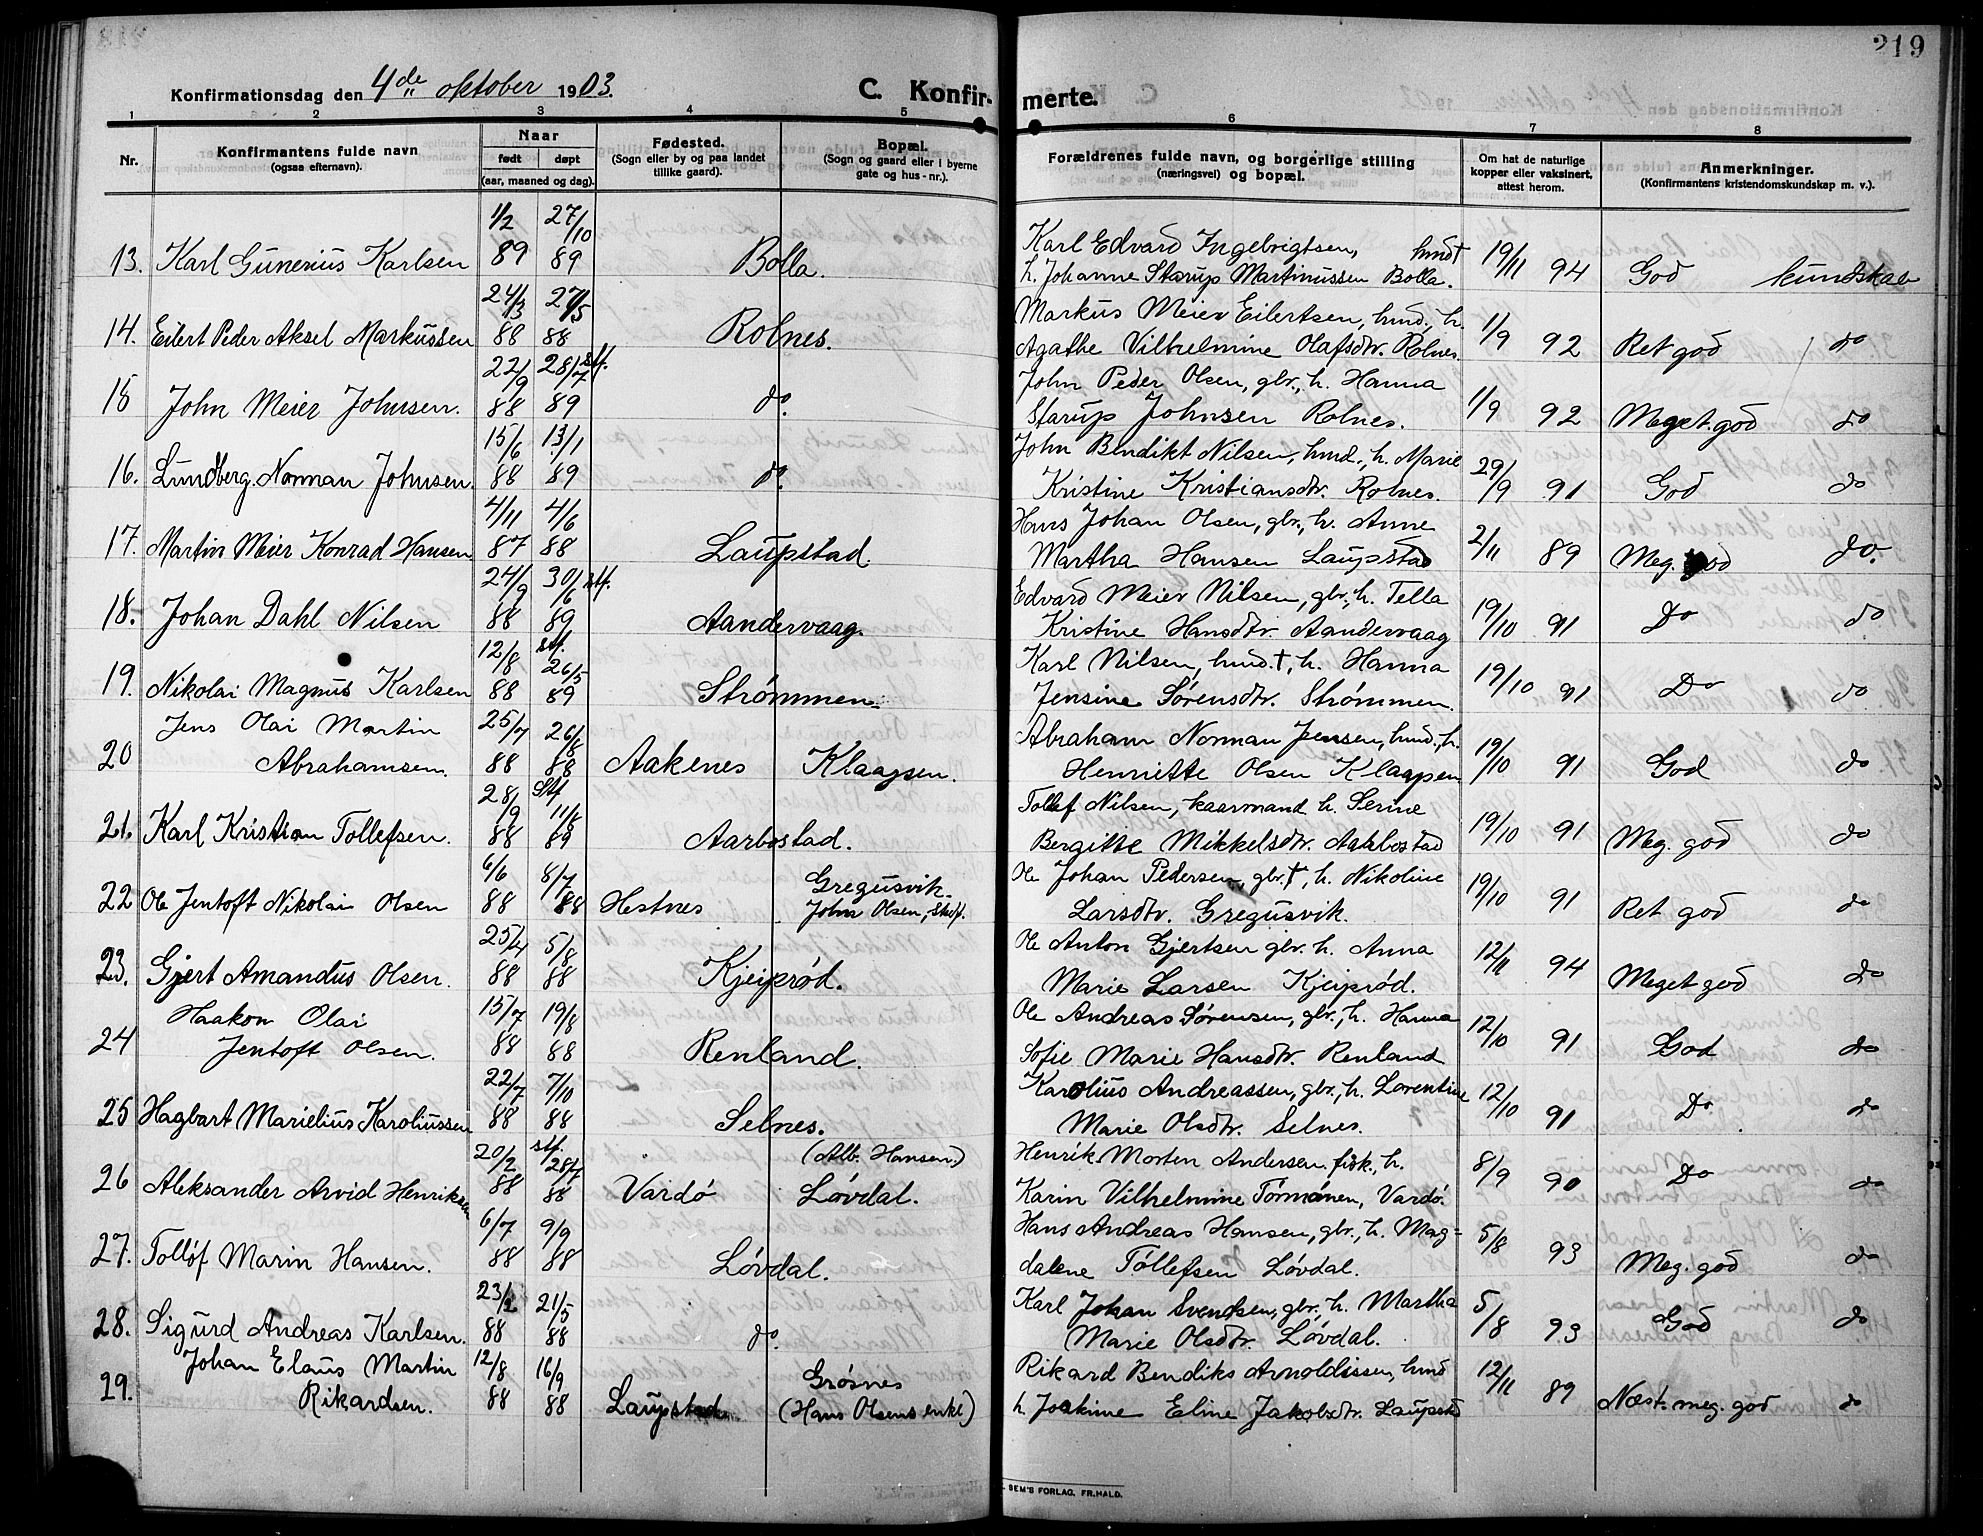 219
Konfirmationsdag den 4de oktober 1903. C. Konfirmerte.
1 2 3 4 5 6 7 8
Nr. Konfirmantens fulde navn (ogsaa efternavn). Naar født døpt (aar, maaned og dag). Fødested. (Sogn eller by og paa landet tillike gaard). Bopæl. (Sogn og gaard eller i byerne gate og hus-nr.). Forældrenes fulde navn, og borgerlige stilling (næringsvei) og bopæl. Om hat de naturlige kopper eller vaksinert, attest herom. Anmerkninger. (Konfirmantens kristendomskundskap m. v.).
13. Karl Gunerius Karlsen 1/2 89 27/10 89 Bolla. Karl Edvard Ingebrigtsen, hmd† h. Johanne Starup Martinussen Bolla. 19/11 94 God kundskab
14. Eilert Peder Aksel Markussen 24/3 88 27/5 88 Rolnes. Markus Meier Eilertsen, hmd., h. Agathe Vilhelmine Olafsdtr. Rolnes. 1/9 92 Ret god do
15 John Meier Johnsen. 22/9 88 28/7 stf. 89 do. John Peder Olsen, gbr., h. Hanna Starup Johnsen Rolnes. 1/9 92 Meget god do
16. Lundberg Norman Johnsen. 15/6 88 13/1 89 do. John Bendikt Nilsen, hmd., h. Marie Kristine Kristiansdtr. Rolnes. 29/9 91 God do
17. Martin Meier Konrad Hansen 4/11 87 4/6 88 Laupstad. Hans Johan Olsen, gbr., h. Anne Martha Hansen Laupstad 2/11 89 Meg. god do.
18. Johan Dahl Nilsen 24/9 88 30/6 stf. 89 Aandervaag. Edvard Meier Nilsen, gbr., h. Tella Kristine Hansdtr. Aandervaag 19/10 91 Do do
19. Nikolai Magnus Karlsen 12/8 88 stf. 26/5 89 Strømmen. Karl Nilsen, hmd. †, h. Hanna Jensine Sørensdtr. Strømmen. 19/10 91 Do do
20 Jens Olai Martin Abrahamsen. 25/7 88 26/8 88 Aakenes Klaapen. Abraham Norman Jensen, hmd., h. Henriette Olsen Klaapen 19/10 91 God do
21. Karl Kristian Tollefsen. 28/9 88 Stf 11/8 89 Aarbostad. Tollef Nilsen, kaarmand h. Serine Bergitte Mikkelsdtr. Aarbostad 19/10 91 Meg. god do
22 Ole Jentoft Nikolai Olsen 6/6 88 8/7 88 Hestnes Gregusvik. John Olsen, Skof. Ole Johan Pedersen gbr. †, h. Nikoline Larsdtr. Gregusvik. 19/10 91 Ret god do
23. Gjert Amandus Olsen. 25/4 88 5/8 88 Kjeiprød. Ole Anton Gjertsen gbr. h. Anna Marie Larsen Kjeiprød. 12/11 94 Meget god do
24 Haakon Olai Jentoft Olsen. 15/7 88 19/8 88 Renland. Ole Andreas Sørensen, gbr., h. Hanna Sofie Marie Hansdtr. Renland 12/10 91 God do
25 Hagbart Marielius Karoliussen 22/7 88 7/10 88 Selnes. Karolius Andreassen, gbr., h. Lorentine Marie Olsdtr. Selnes. 12/10 91 Do. do
26 Aleksander Arvid Henriksen 20/2 88 stf. 28/7 88 Vardø (Alb. Hansen.) Løvdal. Henrik Morten Andersen. fisk., h. Karin Vilhelmine Törmänen, Vardø. 8/9 90 Do do
27. Tolløf Marin Hansen. 6/7 88 9/9 88 Løvdal. Hans Andreas Hansen, gbr., h. Magdalene Tøllefsen Løvdal. 5/8 93 Meg. god do
28. Sigurd Andreas Karlsen. 23/2 88 21/5 88 do. Karl Johan Svendsen, gbr., h. Martha Marie Olsdtr. Løvdal. 5/8 93 God do
29. Johan Elaus Martin Rikardsen. 12/8 88 16/9 88 Laupstad. Grøsnes (Hans Olsens enke) Rikard Bendiks Arnoldissen, hmd h. Joakime Eline Jakobsdtr. Laupstad 12/11 89 Næst. meg. god do
SEM'S FORLAG. FR.HALD.